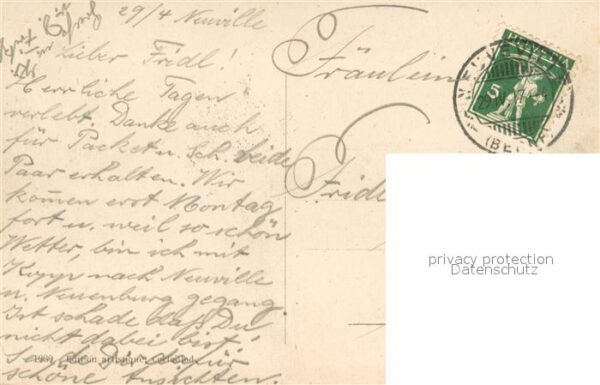 29/4 Neuville
Lieber Fridl!
Herrliche Tagen
verlebt. Danke auch
für Packet u. Sch. beide
Paar erhalten. Wir
kommen erst Montag
fort u. weil so schön
Wetter, bin ich mit
Kopp nach Neuville
u. Neuenburg gegang.
Ist schade daß Du
nicht dabei bist!
Sende Dir für
schöne Ansichten.
Fräulein
Fridl
HELVETIA
5
(BE
privacy protection
Datenschutz
Edition artistique